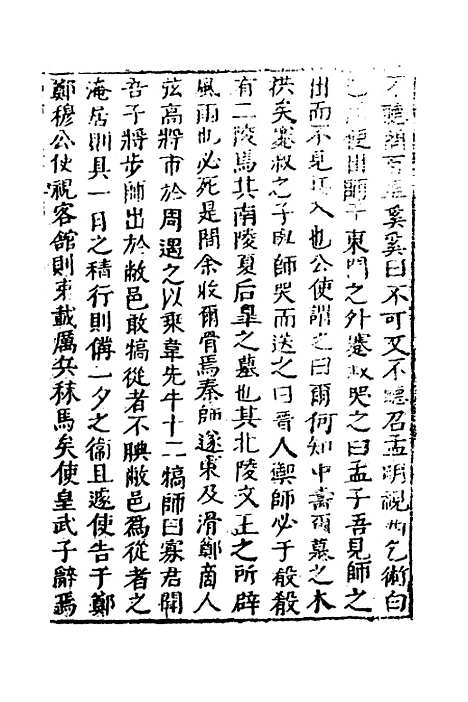 不聽訪百里奚奚曰不可又不聽召孟明視西乞術白
乙丙使出師于東門之外蹇叔哭之曰孟子吾見師之
出而不見其入也公使謂之曰爾何知中壽爾墓之木
拱矣蹇叔之子與師哭而送之曰晋人禦師必于殽殽
有二陵焉其南陵夏后皐之墓也其北陵文王之所辟
風雨也必死是間余收爾骨焉秦師遂東及滑鄭商人
弦高將市於周遇之以乘韋先牛十二犒師曰寡君聞
吾子將步師出於敝邑敢犒從者不腆敝邑爲從者之
淹居則具一日之積行則備一夕之衞且遽使告于鄭
鄭穆公使視客館則束載厲兵秣馬矣使皇武子辭焉